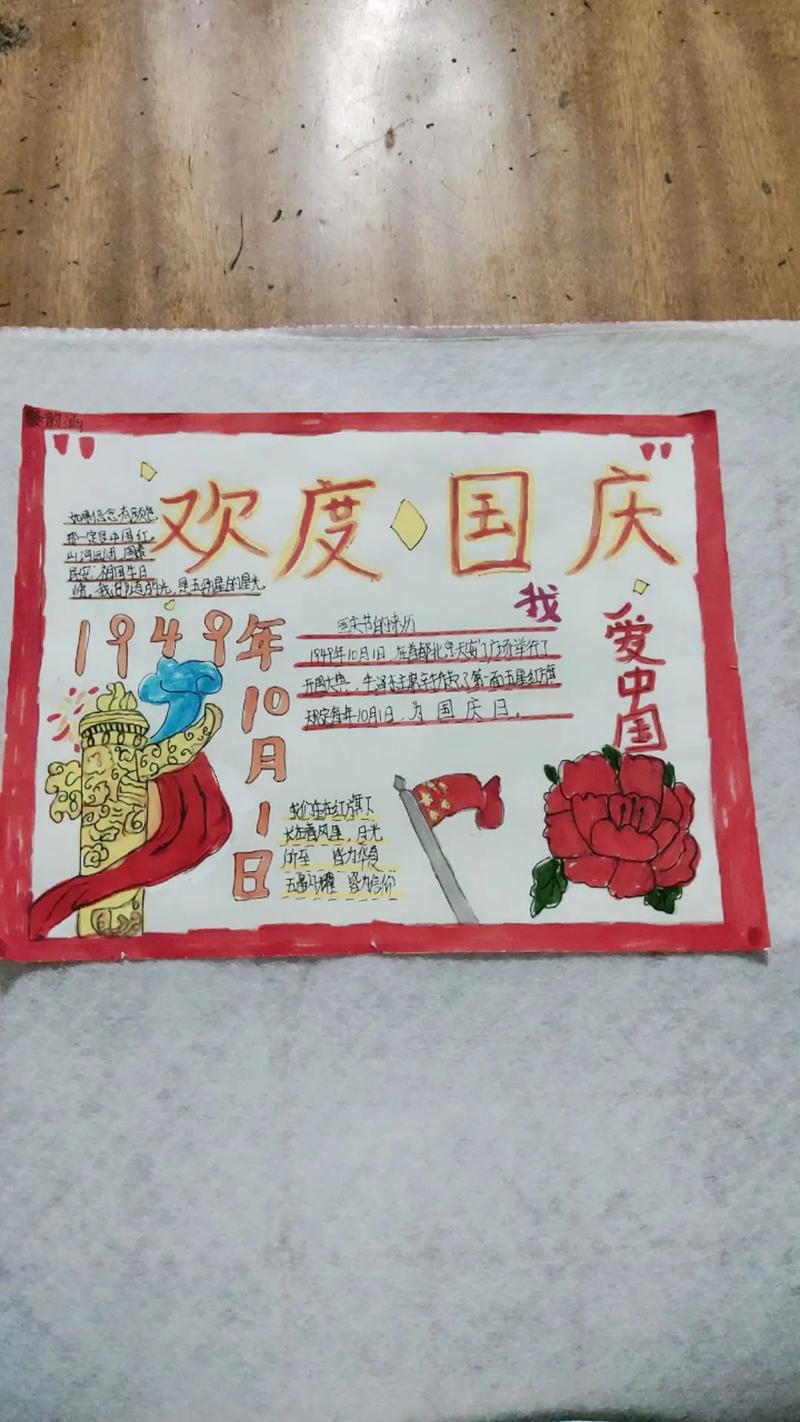 欢度国庆
如果信念有颜色
那一定是中国红
山河远阔,国泰
民安,祖国生日
的光,是五种星的星光
1949年10月1日
我爱中国
国庆节的来历
1949年10月1日,在首都北京天安门广场举行了
开国大典,毛泽东主席亲手升起了第一面五星红旗
规定每年10月1日,为国庆日。
我们生在红旗下
长在春风里,目光
所至 皆为华夏
五星闪耀 皆为信仰